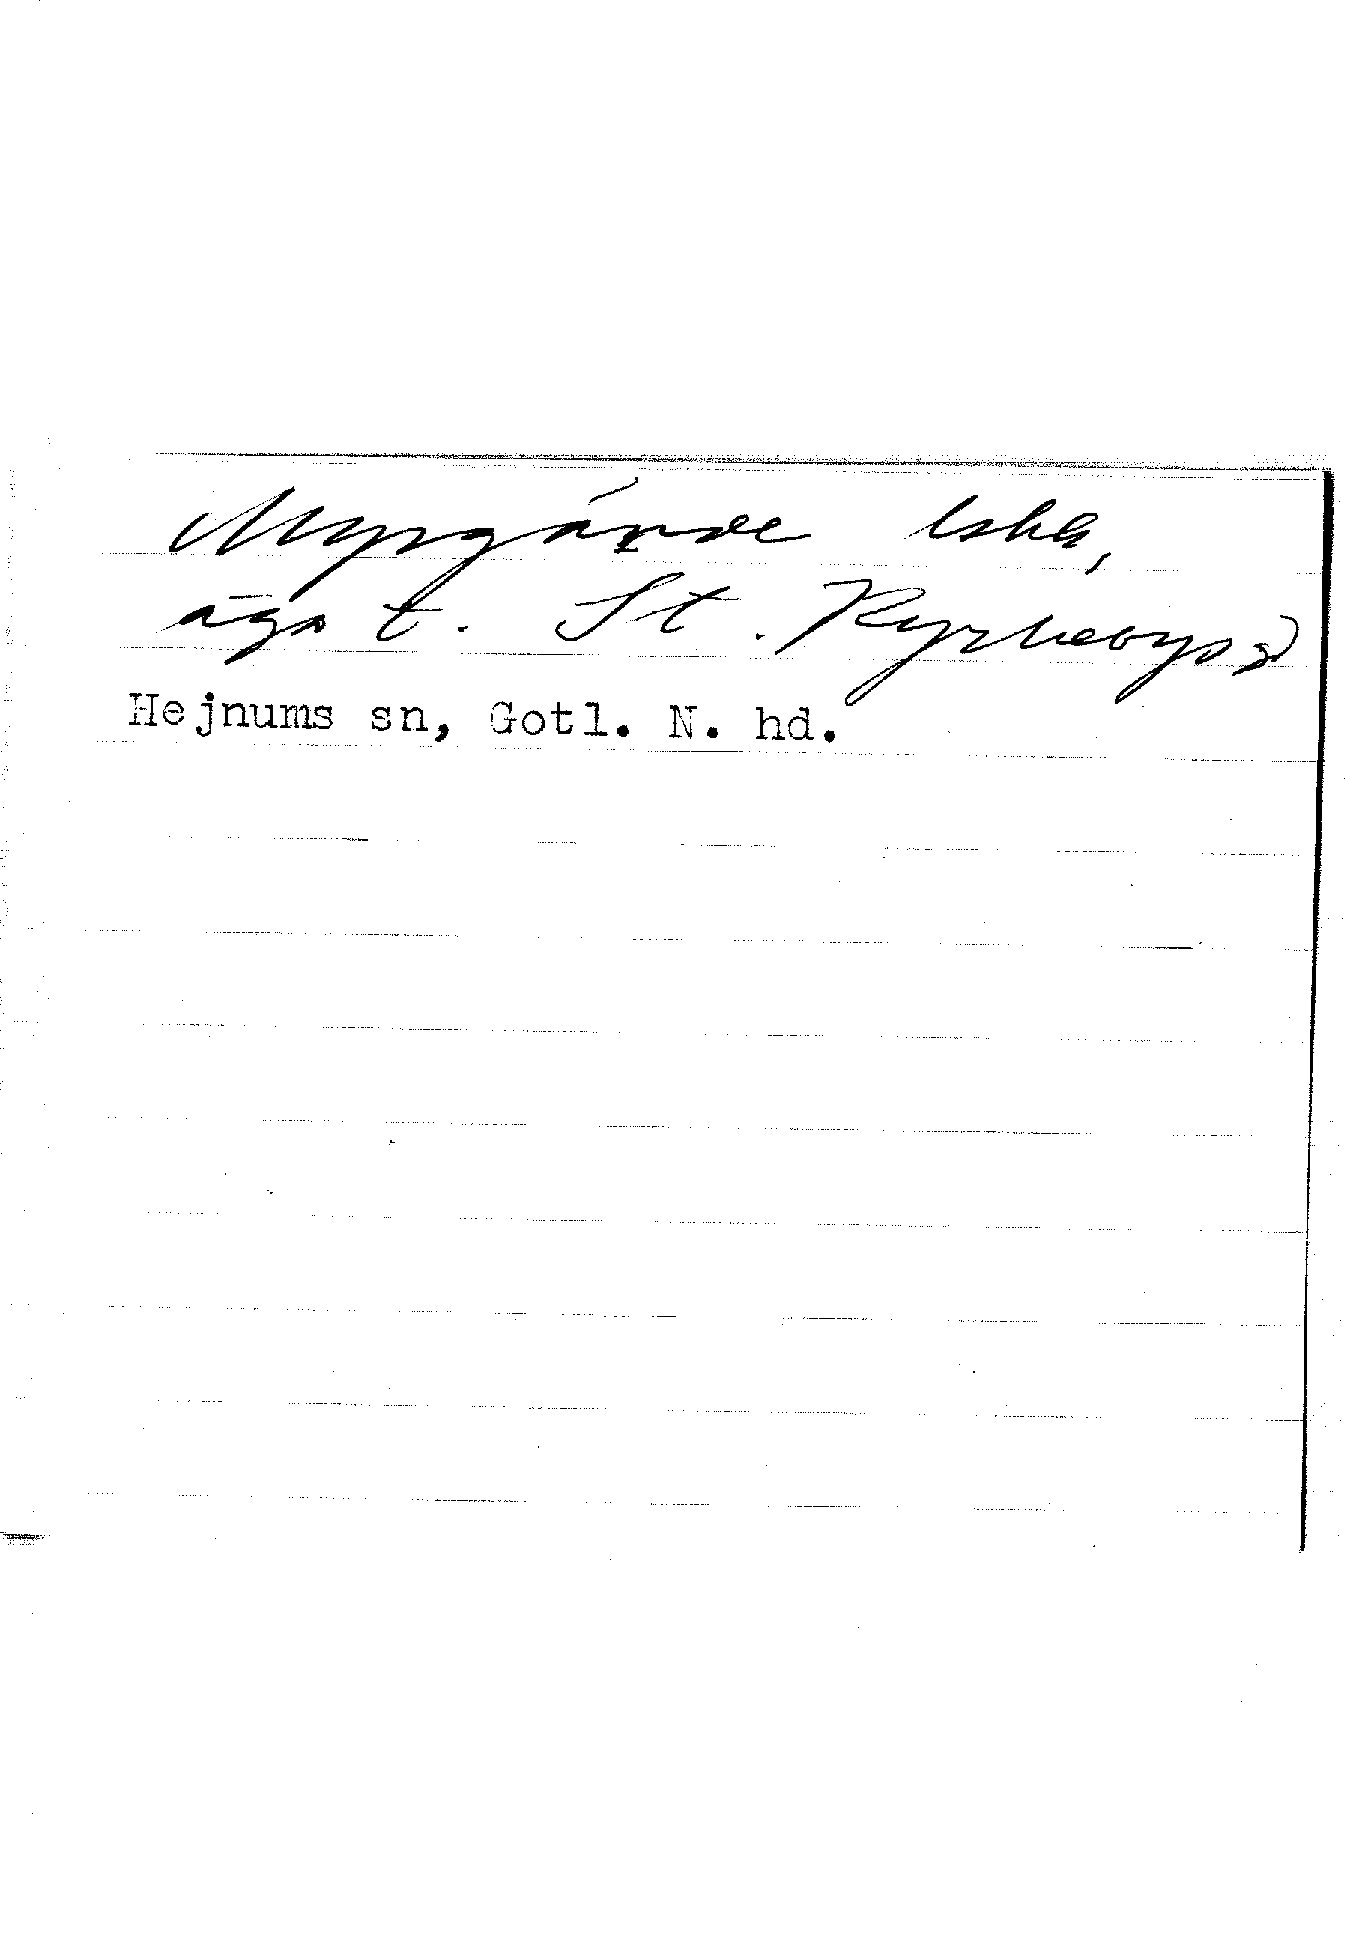 Myrgärde
äga t. St. Kyrkebys gd
Hejnums sn, Gotl. N. hd.